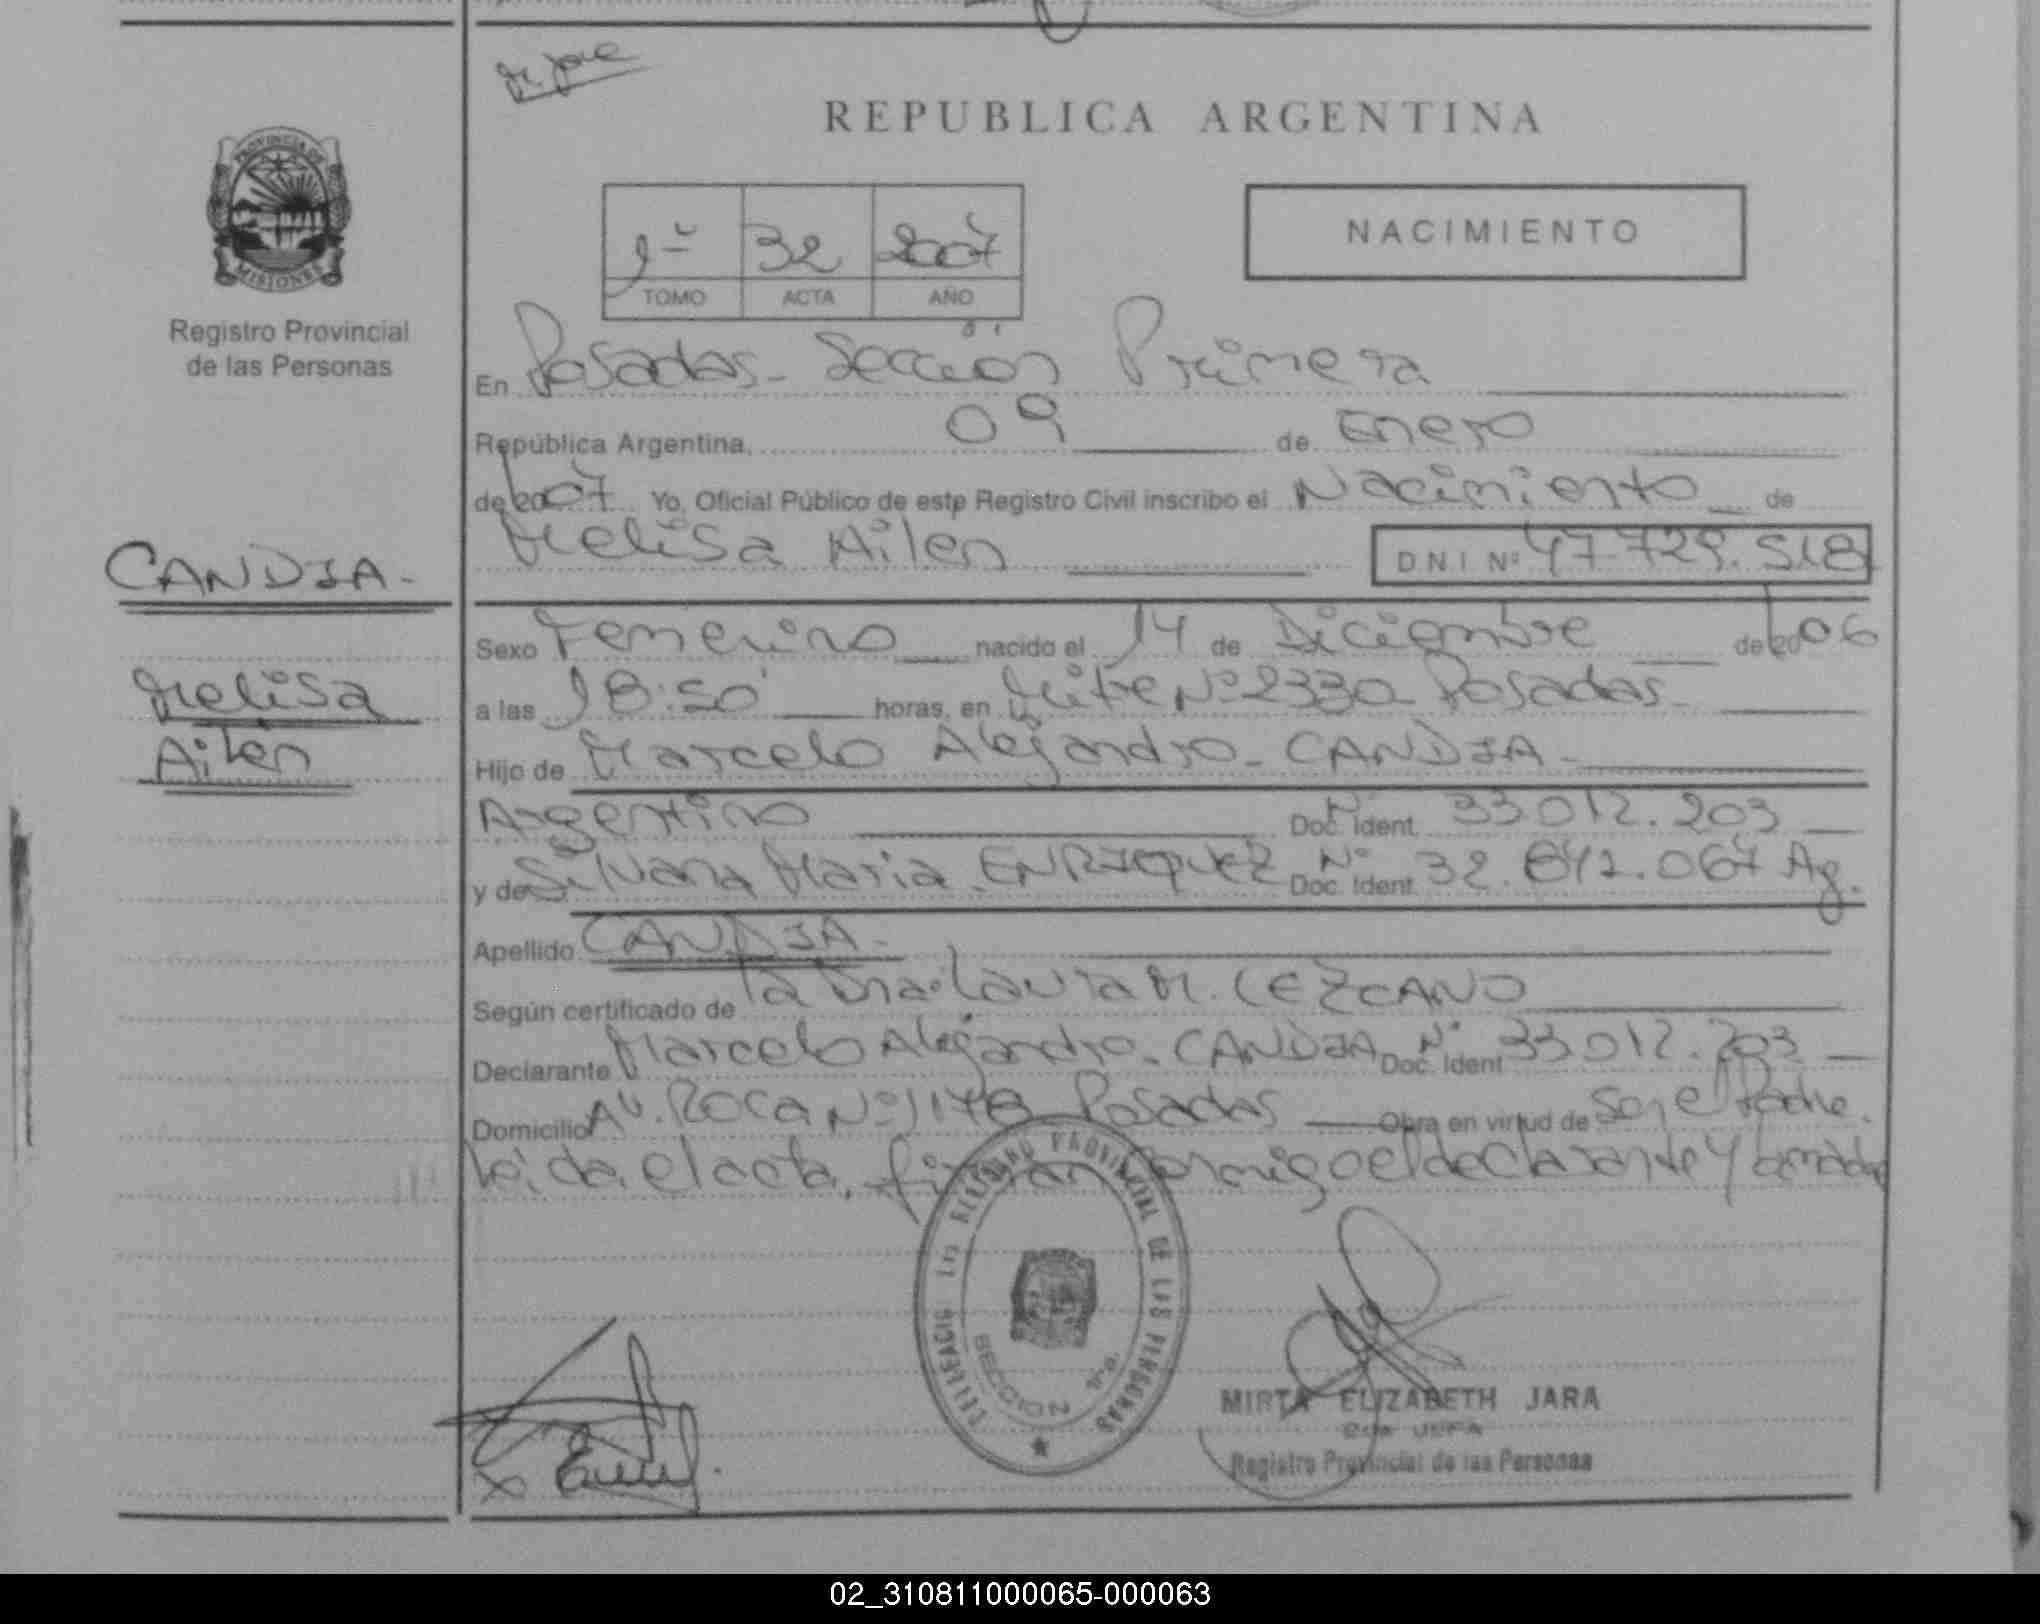 REPUBLICA ARGENTINA
PROVINCIA DE
MISIONES
Registro Provincial
de las Personas
1º 32 2007
TOMO ACTA AÑO
NACIMIENTO
En Posadas - Sección Primera
República Argentina, 09 de Enero
de 2007 Yo, Oficial Público de este Registro Civil inscribo el Nacimiento de
Melisa Ailen D N I Nº 47.729.518
CANDIA -
Melisa
Ailen
Sexo Femenino nacido el 14 de Diciembre de 2006
a las 18:50 horas, en Mitre Nº 2330 Posadas -
Hijo de Marcelo Alejandro - CANDIA -
Argentino Nº Doc. Ident. 33.012.203
y de Silvana Maria ENRIQUEZ Nº Doc. Ident. 32.842.067 Ag.
Apellido CANDIA -
Según certificado de la Dra. Laura M. LEZCANO
Declarante Marcelo Alejandro - CANDIA Nº Doc. Ident 33.012.203
Domicilio Av. Roca Nº 1178 Posadas Obra en virtud de ser el Padre.
Leida el acta, firman conmigo el declarante y la madre
DELEGACIO 1ra REGISTRO PROVINCIAL DE LAS PERSONAS
SECCION 1ra.
MIRTA ELIZABETH JARA
2da JEFA
Registro Provincial de las Personas
02_310811000065-000063